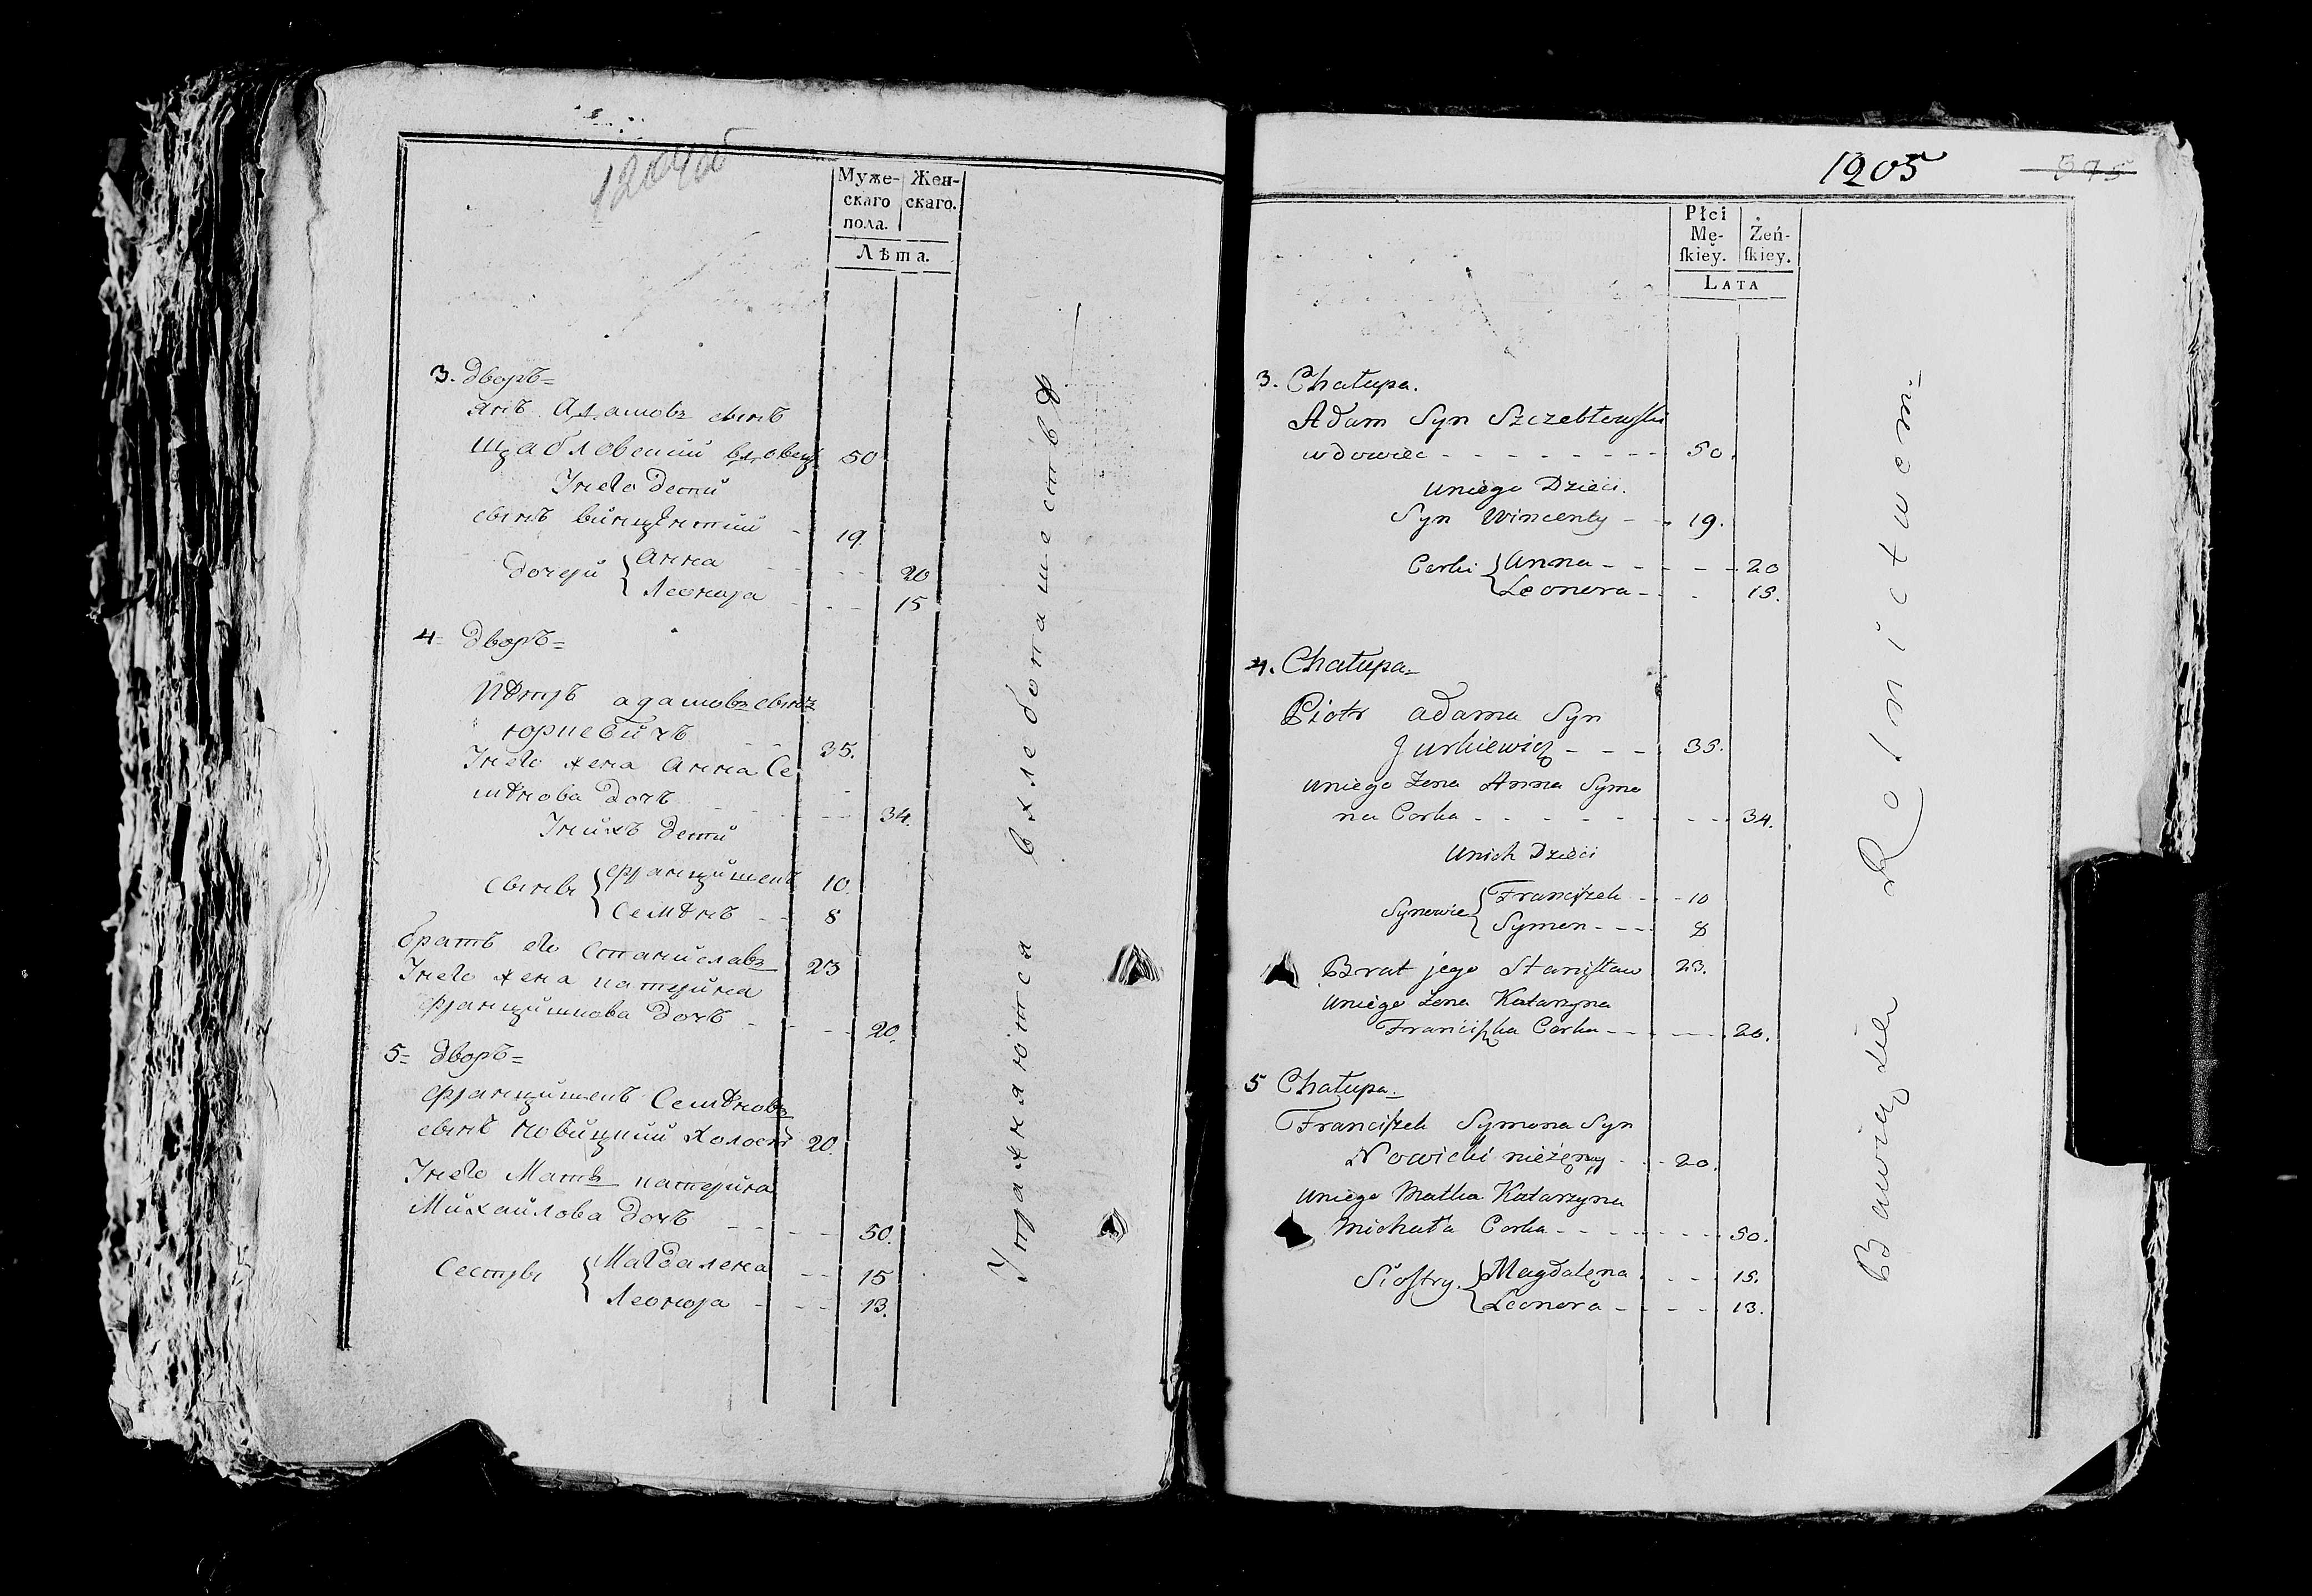 1204 об
Муже-
скаго
пола.
Жен-
скаго.
Лѣта.
3. Дворъ=
Янъ Адамовъ сынъ
Щабловский вдовецъ 50
У него дети
сынъ Винцентий - 19.
дочери { Анна - - - 20
Леонора - - - 15
4= Дворъ=
Петръ Адамовъ сынъ
Юркевичъ - - 35.
У него жена Анна Се
менова дочь - - - 34.
У нихъ дети
сыны { Францишекъ 10.
Семенъ - - 8
братъ его Станиславъ 23
У него жена Катерина
Францишкова дочь - - - 20.
5= Дворъ=
Францишекъ Семеновъ
сынъ Новицкий холостъ 20.
У него мать Катерина
Михайлова дочь - - - - 50.
Сестры { Магдалена - - 15
Леонора - - - 13.
Упражняются в хлебопашестве
1205
575
Płci
Mę-
skiey.
Żeń-
skiey.
LATA
3. Chałupa.
Adam Syn Szczebłowski
wdowiec - - - - - - - - 50.
uniego Dzieci.
Syn Wincenty - - 19.
Corki { Anna - - - - - 20
Leonora - - 15.
4. Chałupa=
Piotr Adama Syn
Jurkiewicz - - - 35.
uniego Żona Anna Symo
na Corka - - - - - - - - 34.
unich Dzieci
Synowie { Franciszek - - 10
Symon - - - 8
Brat jego Stanisław 23.
uniego żona Katarzyna
Franciszka Corka - - - - - 20.
5 Chałupa.
Franciszek Symona Syn
Nowicki nieżęny - - 20.
uniego Matka Katarzyna
Michała Corka - - - - - - - 50.
Siostry. { Magdalęna - - - 15.
Leonora - - - - 13.
Bawią się Rolnictwem=